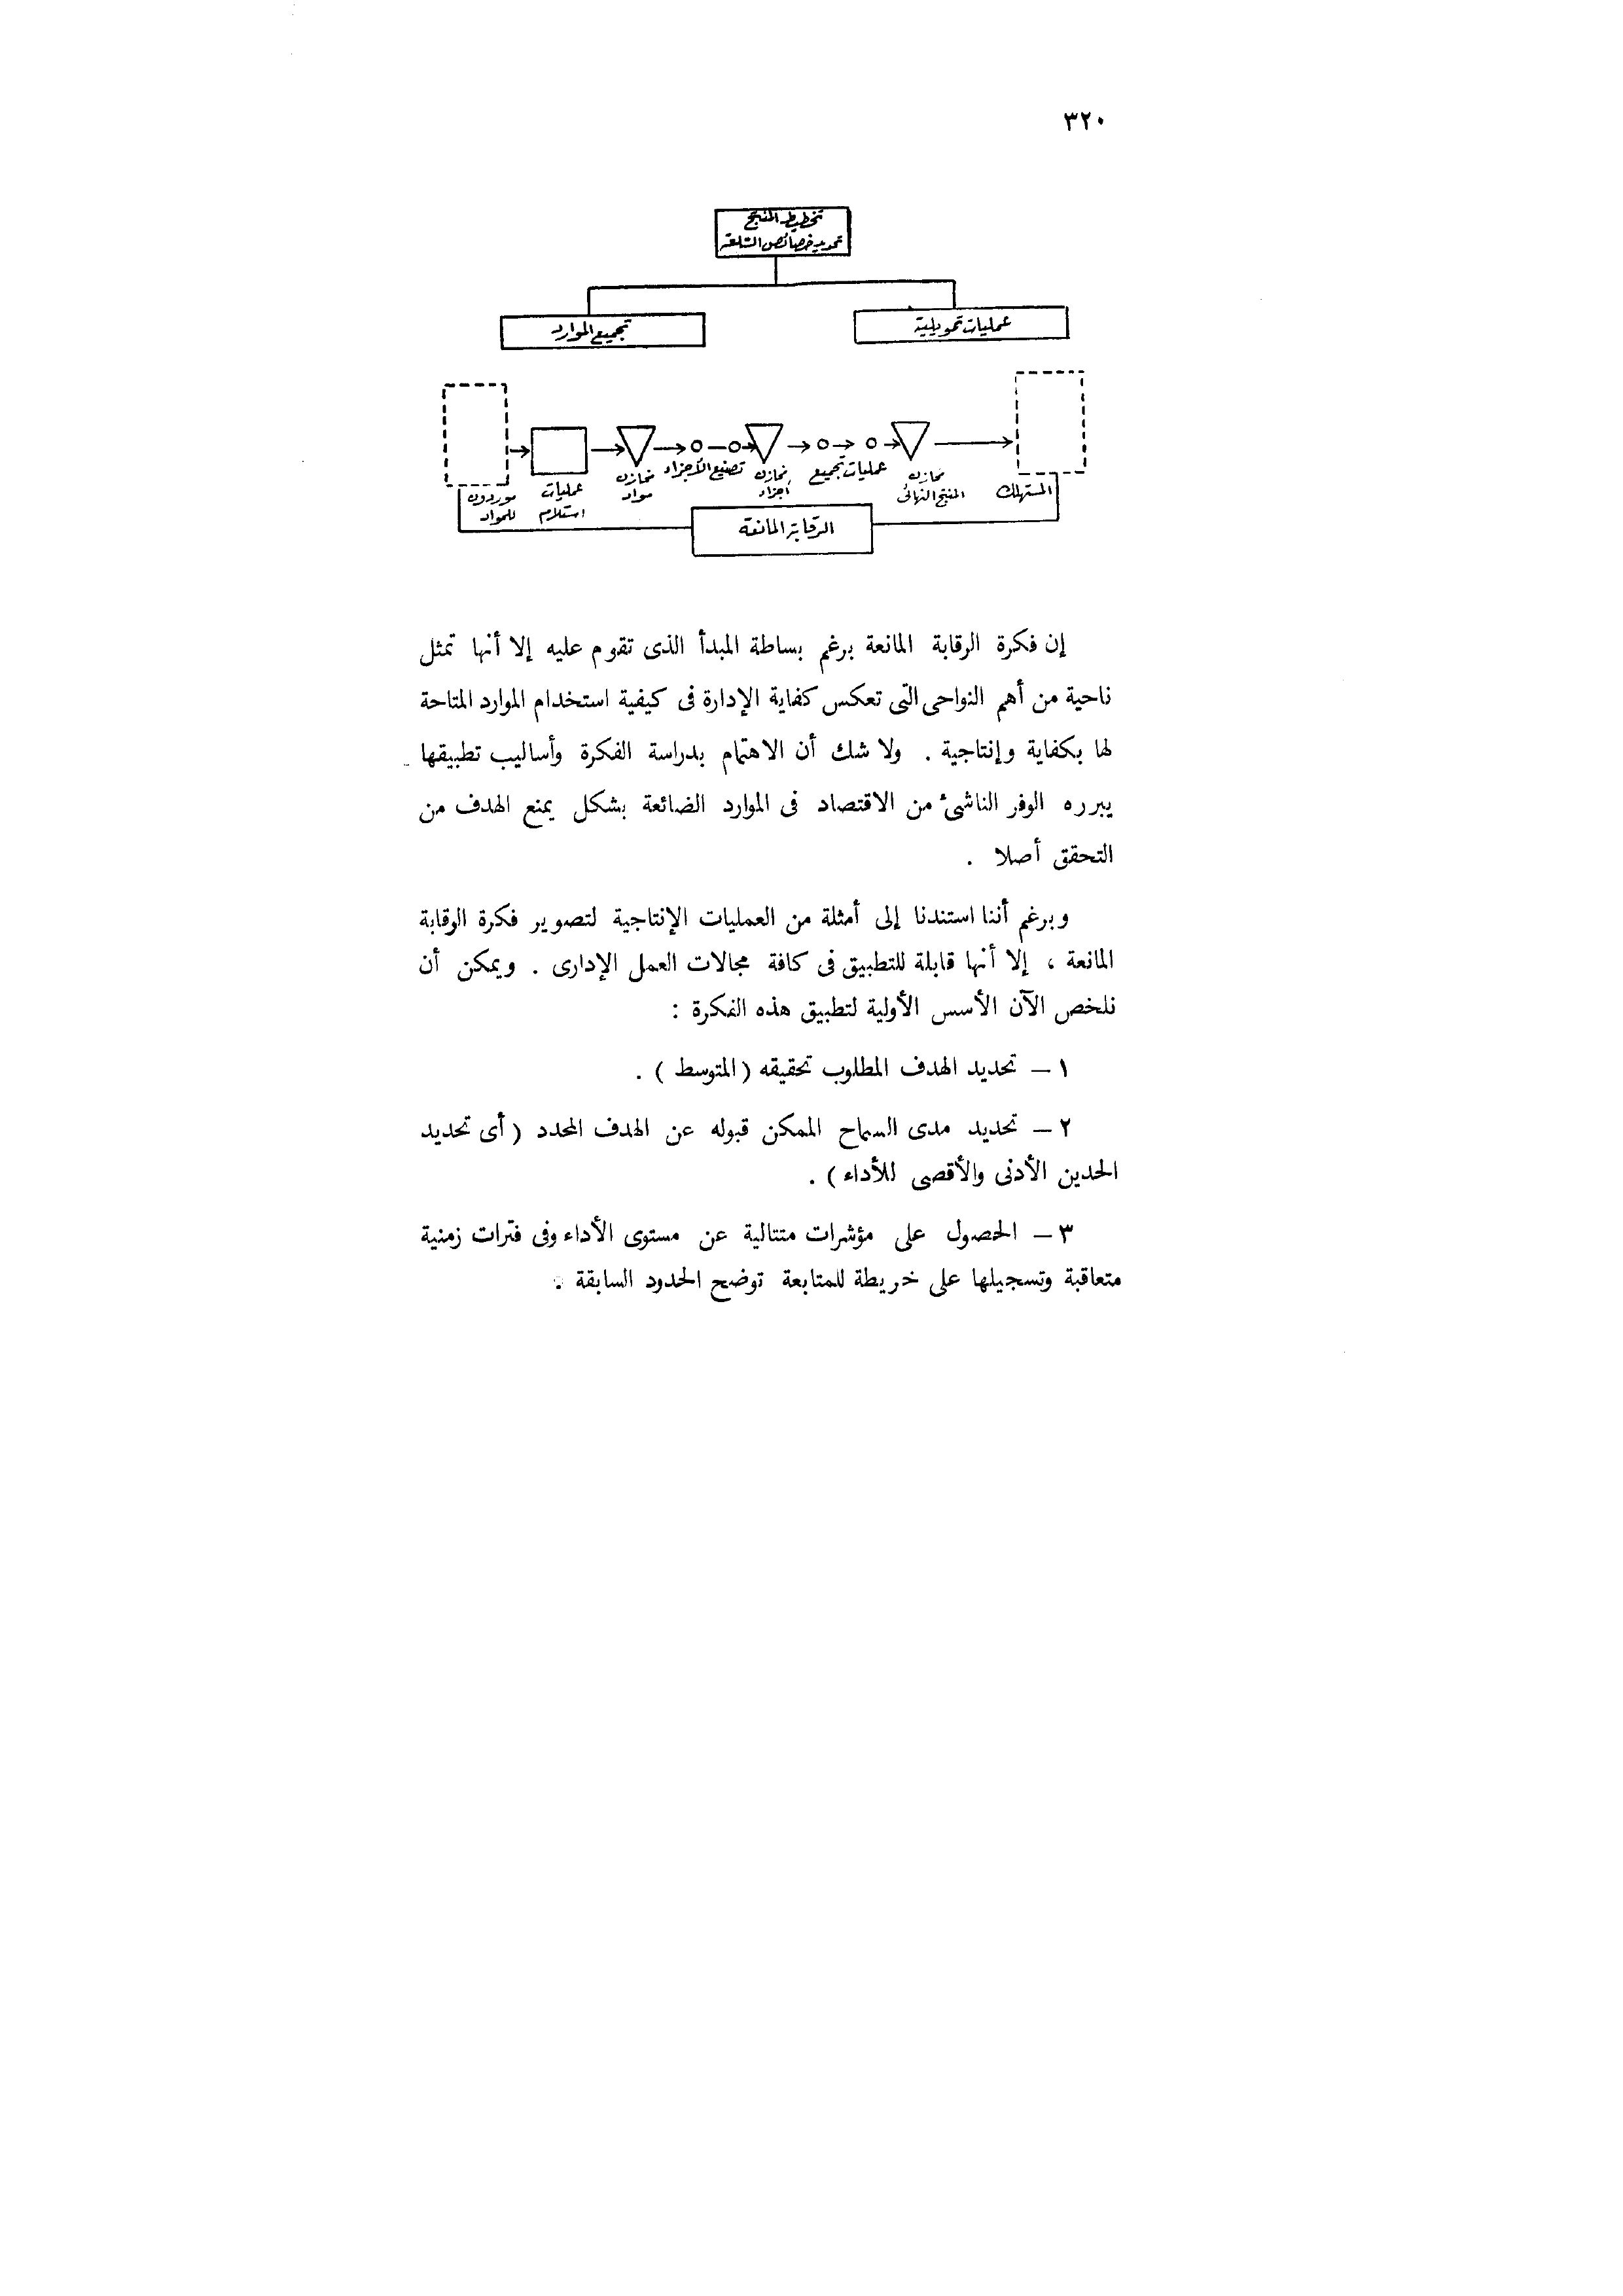 ٣٢٠
تخطيط المنتج
تحديد خصائص السلعة
عمليات تحويلية
تجميع الموارد
موردون
للمواد
عمليات
استلام
مخازن
مواد
تصنيع الأجزاء
مخازن
أجزاء
عمليات تجميع
مخازن
المنتج النهائى
المستهلك
الرقابة المانعة
إن فكرة الرقابة المانعة برغم بساطة المبدأ الذى تقوم عليه إلا أنها تمثل
ناحية من أهم النواحى التى تعكس كفاية الإدارة فى كيفية استخدام الموارد المتاحة
لها بكفاية وإنتاجية . ولا شك أن الاهتمام بدراسة الفكرة وأساليب تطبيقها
يبرره الوفر الناشئ من الاقتصاد فى الموارد الضائعة بشكل يمنع الهدف من
التحقق أصلا .
وبرغم أننا استندنا إلى أمثلة من العمليات الإنتاجية لتصوير فكرة الرقابة
المانعة ، إلا أنها قابلة للتطبيق فى كافة مجالات العمل الإدارى . ويمكن أن
نلخص الآن الأسس الأولية لتطبيق هذه الفكرة :
١ — تحديد الهدف المطلوب تحقيقه ( المتوسط ) .
٢ — تحديد مدى السماح الممكن قبوله عن الهدف المحدد ( أى تحديد
الحدين الأدنى والأقصى للأداء ) .
٣ — الحصول على مؤشرات متتالية عن مستوى الأداء وفى فترات زمنية
متعاقبة وتسجيلها على خريطة للمتابعة توضح الحدود السابقة .